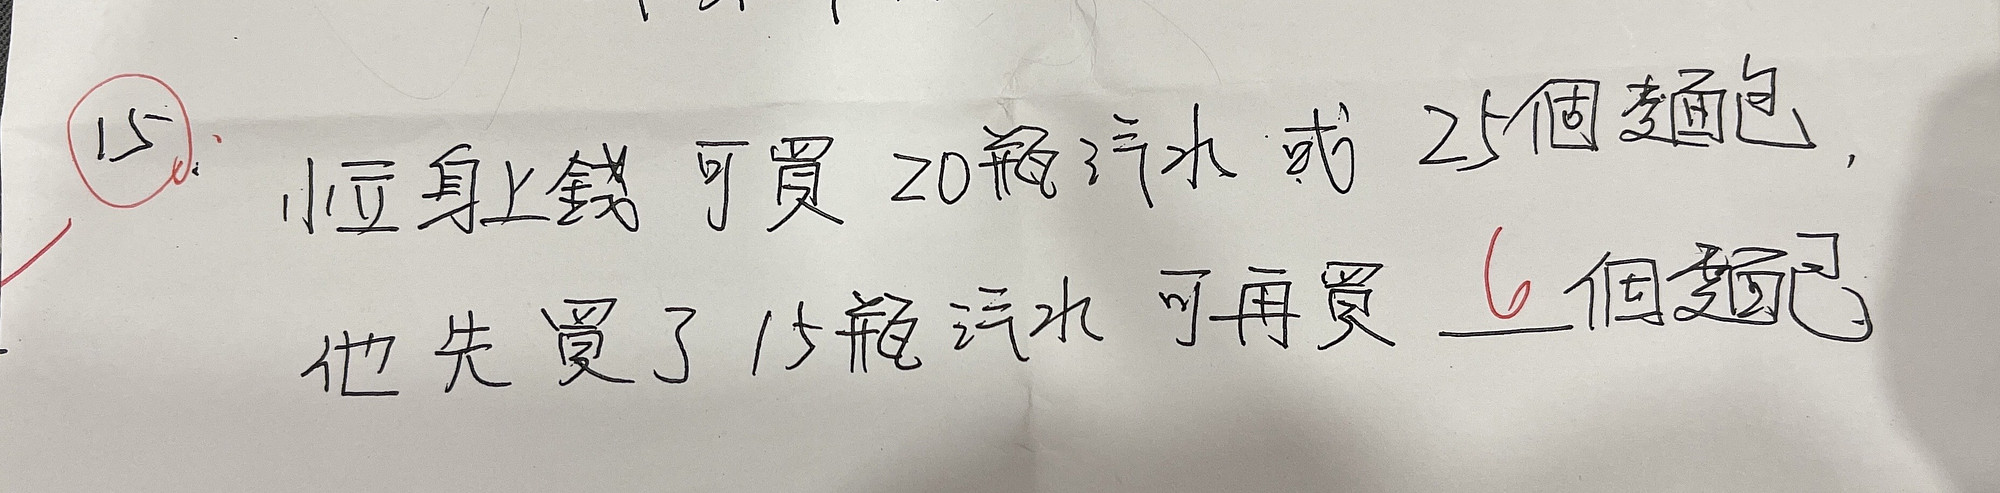 15.
小豆身上錢可買20瓶汽水或25個麵包,
他先買了15瓶汽水可再買6個麵包